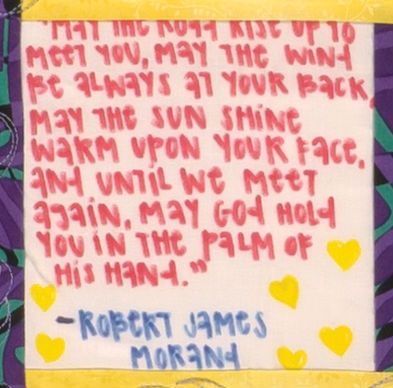 "MAY THE ROAD RISE UP TO
MEET YOU, MAY THE WIND
BE ALWAYS AT YOUR BACK,
MAY THE SUN SHINE
WARM UPON YOUR FACE,
AND UNTIL WE MEET
AGAIN, MAY GOD HOLD
YOU IN THE PALM OF
HIS HAND."
-ROBERT JAMES
MORAND